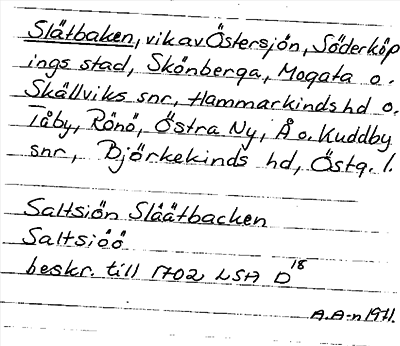 Slätbaken, vik av Östersjön, Söderköp
ings stad, Skönberga, Mogata o.
Skällviks snr, Hammarkinds hd o.
Tåby, Rönö, Östra Ny, Å o. Kuddby
snr, Björkekinds hd, Östg. l.
Saltsiön Slåätbacken
Saltsiöö
beskr. till 1702 LSA D 18
A.A-n 1971.